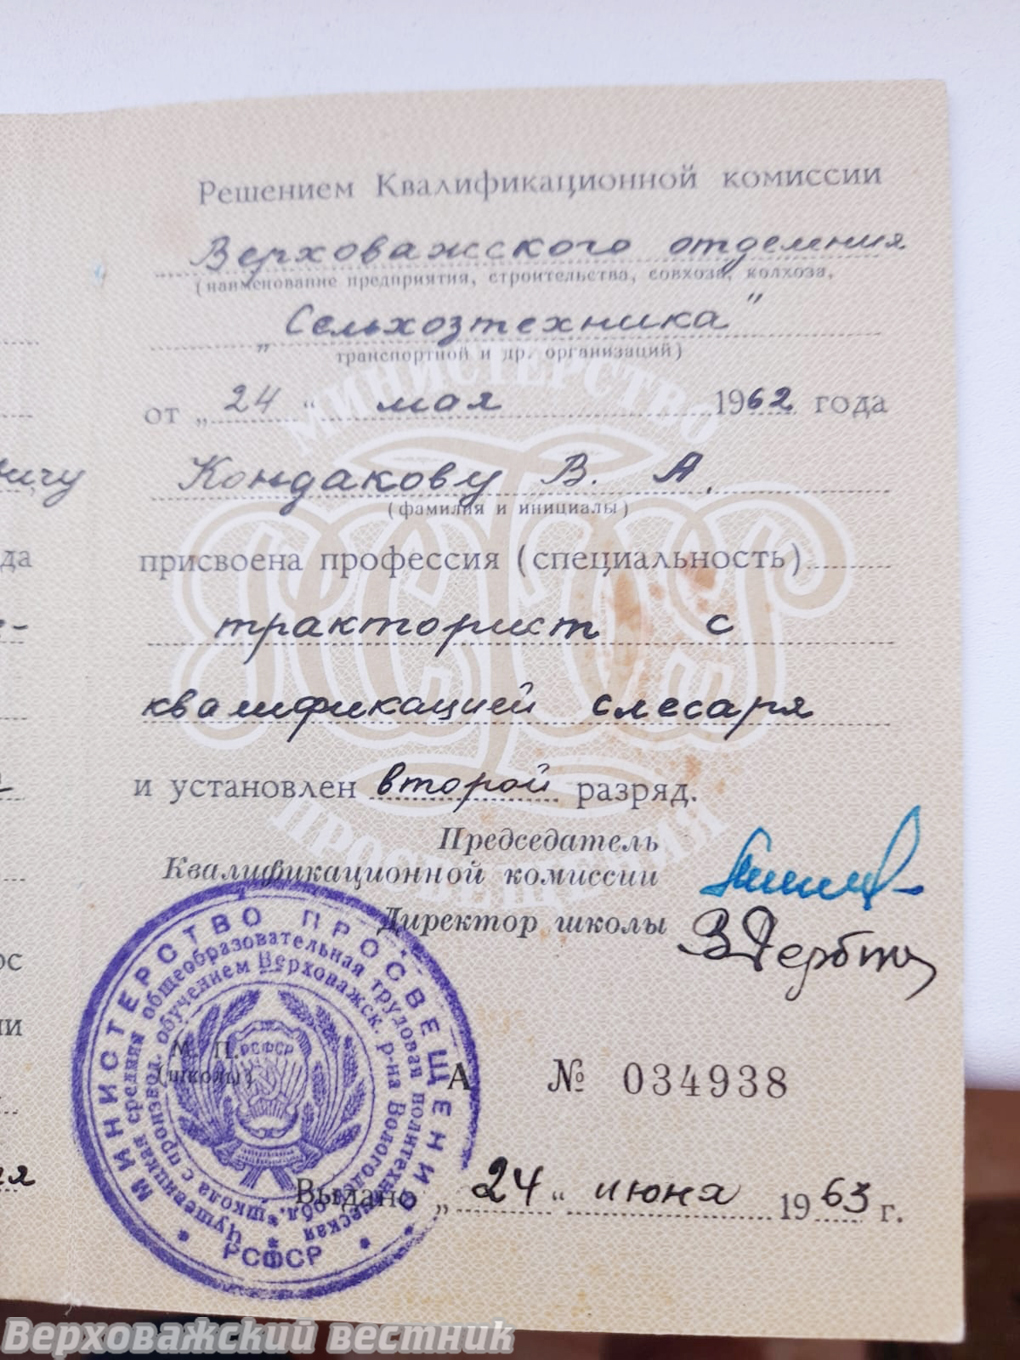 Решением Квалификационной комиссии
Верховажского отделения
(наименование предприятия, строительства, совхоза, колхоза,
„Сельхозтехника"
транспортной и др. организаций)
от „24" мая 1962 года
Кондакову В. А.
(фамилия и инициалы)
присвоена профессия (специальность)
тракторист с
квалификацией слесаря
и установлен второй разряд.
Председатель
Квалификационной комиссии
Директор школы
М. П.
(школы)
А № 034938
Выдано „24" июня 1963 г.
МИНИСТЕРСТВО ПРОСВЕЩЕНИЯ
РСФСР
МИНИСТЕРСТВО ПРОСВЕЩЕНИЯ РСФСР
Чушевицкая средняя общеобразовательная трудовая политехническая
школа с производ. обучением Верховажск. р-на Вологодской обл.
РСФСР
ичу
да
ос
ии
Верховажский вестник